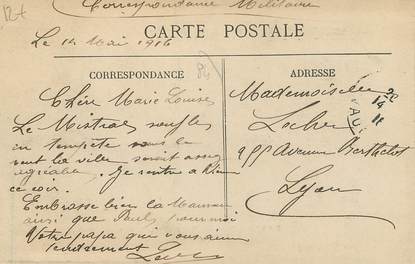 Correspondance Militaire
CARTE POSTALE
Le 14 Mai 1916
CORRESPONDANCE
ADRESSE
Chère Marie Louise
Le Mistral souffle
en tempête sans le
vent la ville serait assez
agréable. Je rentre à
ce soir.
Embrasse bien la Maman
ainsi que Paul pour moi
Votre papa qui vous aime
tendrement
Mademoiselle
Avenue Berthelot
Lyon